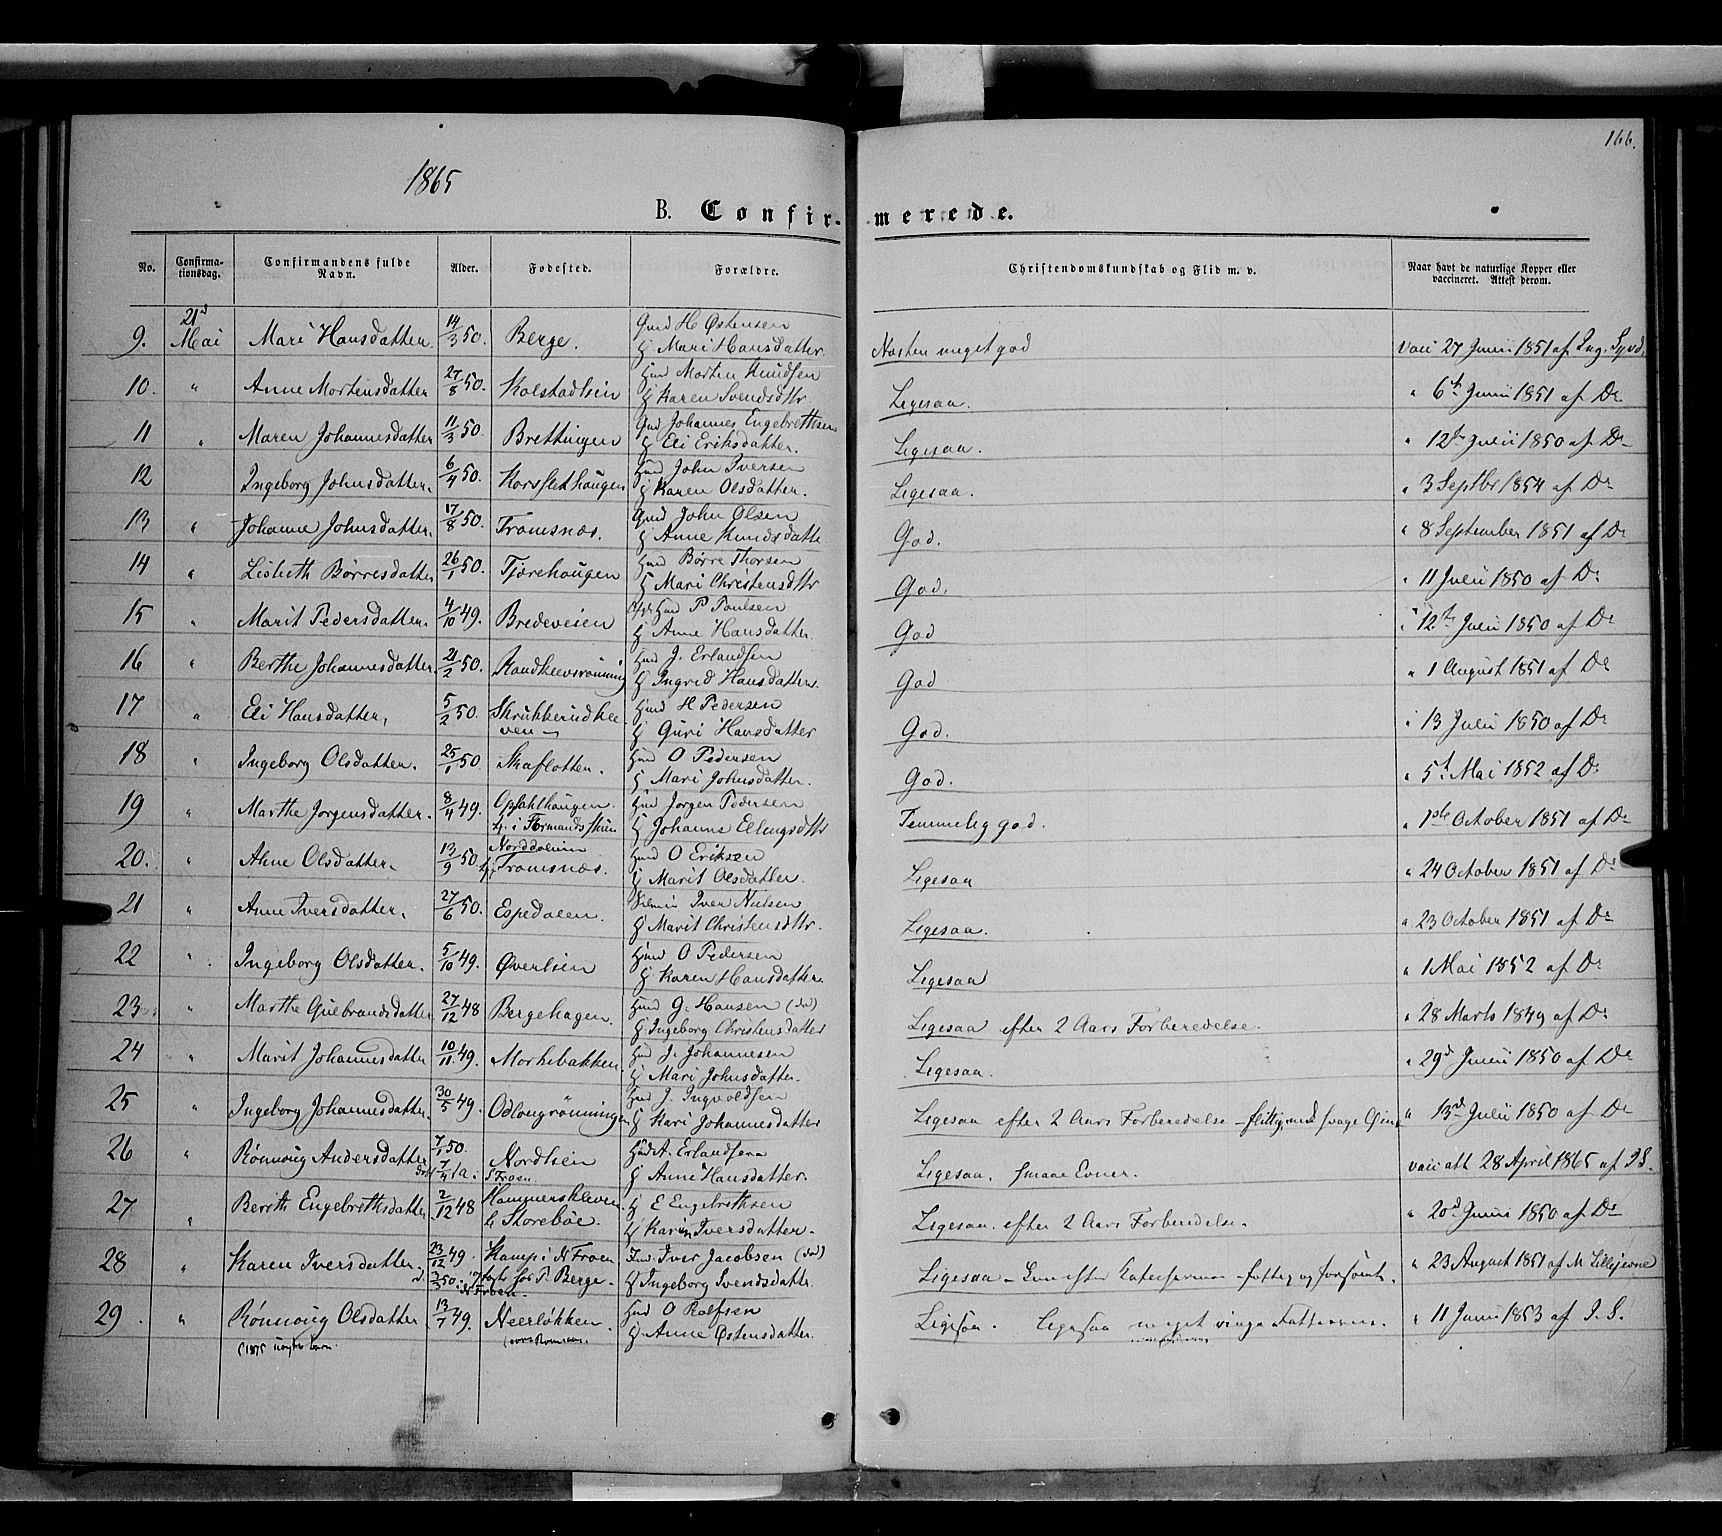 166.
1865
B. Confir- merede.
No. Confirma-tionsdag. Confirmandens fulde Navn. Alder. Fødested. Forældre. Christendomskundskab og Flid m. v. Naar havt de naturlige Kopper eller vaccineret. Attest derom.
21d
9. Mai Mari Hansdatter 14/3 50. Berge. Gmd H Østensen
Hj Mari Hansdatter. Næsten meget god vacc 27 Juni 1851 af
10. " Anne Mortensdatter 27/8 50. Kolstadlien Hmd Morten Knudsen
Hj Karen Svendsdtr. Ligesaa. " 6te Juni 1851 af Do
11 " Maren Johannesdatter 11/3 50. Brettingen Gmd Johannes Engebrethsen
Hj Eli Eriksdatter. Ligesaa. " 12te Julii 1850 af Do
12 Ingeborg Johnsdatter. 6/4 50. Korsflethaugen Hmd John Iversen
Hj Karen Olsdatter. Ligesaa. " 3 Septbr 1854 af Do
13 " Johanne Johnsdatter. 17/8 50. Tromsnæs. Gmd John Olsen
Hj Anne Knudsdatte God. " 8 September 1851 af Do
14 " Lisbeth Børresdatter 26/1 50. Tjærehaugen Hmd Børre Thorsen
Hj Mari Christensdtr God. " 11 Julii 1850 af Do
15 " Marit Pedersdatter. 4/10 49. Bredeveien Hmd P Poulsen
Hj Anne Hansdatter. God " 12te Julii 1850 af Do
16 " Berthe Johannesdatter. 21/2 50. Randkleevsrønning Hmd J. Erlandsen
Hj Ingrid Hansdatter. God " 1 August 1851 af Do
17 " Eli Hansdatter, 5/2 50. Skrukkerudkleeven Hmd H Pedersen
Hj Guri Hansdatter God. " 13 Julii 1850 af Do
18 " Ingeborg Olsdatter. 25/1 50. Skaflotten. Hmd O Pedersen
Hj Mari Johnsdatter. God. " 5te Mai 1852 af Do
19 " Marthe Jørgensdatter. 8/4 49. Opsahlhaugen. Hmd Jørgen Pedersen
Hj. i Formandsstuen Hj Johanne Ellingsdtr Temmelig god. " 1ste October 1851 af Do
Norddalein
20. " Anne Olsdatter. 13/9 50. Hj. Tromsnæs. Hmd O Eriksen
Hj Marit Olsdatter. Ligesaa " 24 October 1851 af Do
21 " Anne Iversdatter. 27/6 50. Espedalen. Iver Nilsen
Hj Marit Christensdtr. Ligesaa. " 23 October 1851 af Do
22 " Ingeborg Olsdatter. 5/10 49. Øverlien Hmd O Pedersen
Hj Karen Hansdatter. Ligesaa " 1 Mai 1852 af Do
23 " Marthe Gulbrandsdatter 27/12 48 Bergehagen. Hmd G. Hansen (død)
Hj Ingeborg Christensdatter Ligesaa efter 2 Aars Forberedelse. " 28 Marts 1849 af Do
24 " Marit Johannesdatter 10/11 49. Morkebakken Hmd J. Johannesen
Hj Mari Johnsdatter. Ligesaa. " 29d Junii 1850 af Do
25 " Ingeborg Johannesdatter. 30/5 49. Odlongrønningen Hmd J. Ingvoldsen
Hj Kari Johannesdatter Ligesaa efter 2 Aars Forberedelse - flittig, med svage " 13d Julii 1850 af Do
26 " Rønnoug Andersdatter 7/1 50. Nordlien Hmd A. Erlandsen
døbt 7/4 i a. i Froen Hj Anne Hansdatter. Ligesaa. smaae Evner. vacc att 28 April 1865 af I S.
27 " Berith Engebrethsdatter. 2/12 48 Hammerskleven Hj E Engebrethsen
Hj Storebøe. Hj Karin Iversdatter. Ligesaa. efter 2 Aars Forberedelse. " 20d Junii 1850 af Do
28 " Karen Iversdatter. 23/12 49. Kamp i N Froen Ind. Iver Jacobsen (død)
d 3/3 50. i N Froen. hos P. Berge. Hj Ingeborg Svendsdatter Ligesaa - fattig og forsømt. " 23 August 1851 af M Lillejevne
29 " Rønnoug Olsdatter 13/7 49. Neerløkken. Hmd O Rolfsen
Hj Anne Østensdatter. Ligesaa. Ligesaa meget ringe Fatteevne. " 11 Juni 1853 af I. S.
(1875